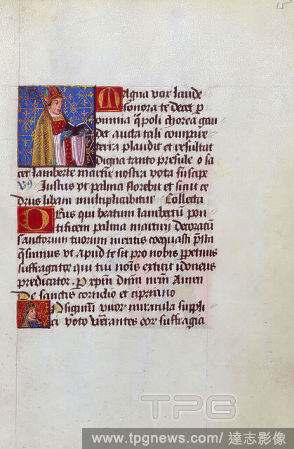 15
Magna vox laude
sonora te decet p
omnia q̄ poli chorea gau
det aucta tali compare
terra plaudit et resultat
digna tanto presule o sa
cer lamberte martir nostra vota suscipe
Iustus ut palma florebit et sicut ce
drus libani multiplicabitur Collecta
Deus qui beatum lambertum pon
tificem palma martirii decoratū
sanctorum tuorum meritis coequasti
ut apud te sit pro nobis perpetuus
suffragator qui tui nominis extitit idoneus
predicator P xpm dnm nrm Amen
De sanctis cornelio et cipriano
miracula suppli
ci voto venerantes cor suffragia
TPG
www.tpgnews.com / 達志影像